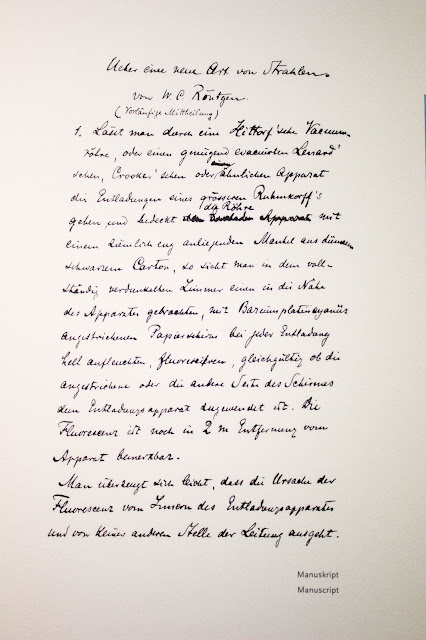 Ueber eine neue Art von Strahlen.
von W. C. Röntgen.
(Vorläufige Mittheilung)
1. Lässt man durch eine Hittorf'sche Vacuum-
röhre, oder einen genügend evacuirten Lenard'
schen, Crookes'schen oder ähnlichen Apparat
die Entladungen eines grösseren Ruhmkorff's
gehen und bedeckt die Röhre mit
einem ziemlich eng anliegenden Mantel aus dünnem
schwarzem Carton, so sieht man in dem voll-
ständig verdunkelten Zimmer einen in die Nähe
des Apparates gebrachten, mit Bariumplatincyanür
angestrichenen Papierschirm bei jeder Entladung
hell aufleuchten, fluoresciren, gleichgültig ob die
angestrichene oder die andere Seite des Schirmes
dem Entladungsapparat zugewendet ist. Die
Fluorescenz ist noch in 2 m Entfernung vom
Apparat bemerkbar.
Man überzeugt sich leicht, dass die Ursache der
Fluorescenz vom Innern des Entladungsapparates
und von keiner anderen Stelle der Leitung ausgeht.
Manuskript
Manuscript